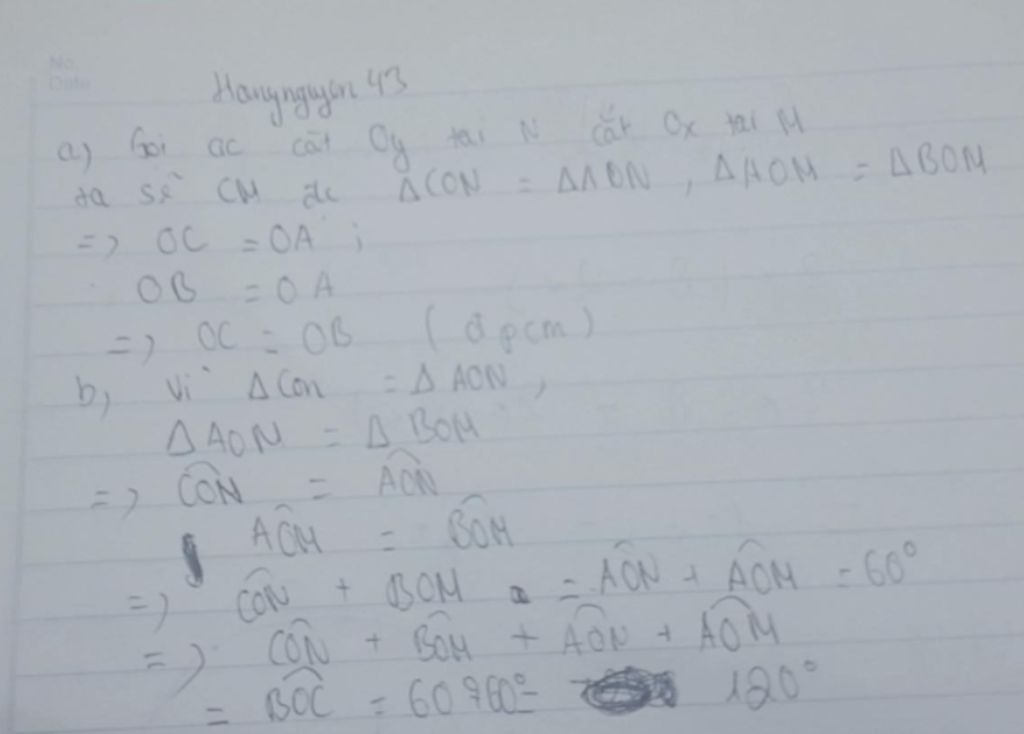 No.
Date
Hanynguyen 43
a) Gọi ac cắt Oy tại N cắt Ox tại M
ta sẽ CM đc ΔCON = ΔAON , ΔAOM = ΔBOM
=> OC = OA ;
OB = OA
=> OC = OB (đpcm)
b, Vì ΔCon = ΔAON ,
ΔAOM = ΔBOM
=> CÔN = AÔN
AÔM = BÔM
=> CÔN + BOM = AÔN + AÔM = 60°
=> CÔN + BÔM + AÔN + AÔM
= BÔC = 60+60°= 120°